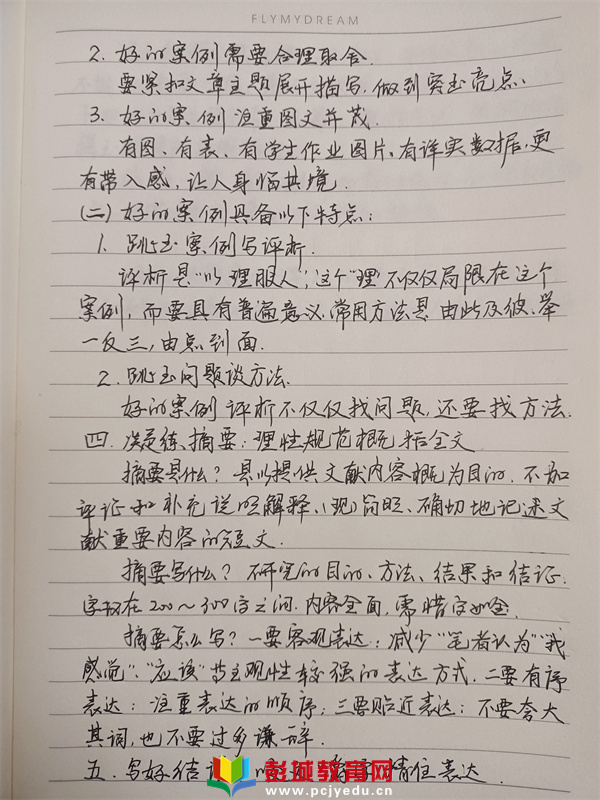 FLYMYDREAM
2. 好的案例需要合理取舍.
要紧扣文章主题展开描写,做到突出亮点、
3. 好的案例注重图文并茂.
有图、有表、有学生作业图片、有详实数据,更
有带入感,让人身临其境.
(二)好的案例具备以下特点:
1. 跳出案例写评析.
评析是“以理服人”,这个“理”不仅仅局限在这个
案例,而要具有普遍意义.常用方法是由此及彼、举
一反三,由点到面.
2. 跳出问题谈方法.
好的案例评析不仅仅找问题,还要找方法.
四. 淡定练摘要:理性规范概括全文
摘要是什么?是以提供文献内容概为目的.不加
评证和补充说明解释、简明、确切地记述文
献重要内容的短文.
摘要写什么?研究的目的、方法、结果和结证.
字数在200~300字之间.内容全面,需惜字如金.
摘要怎么写?一要客观表达:减少“笔者认为”“我
感觉”、“应该”等主观性较强的表达方式.二要有序
表达:注重表达的顺序;三要贴近表达:不要夸大
其词,也不要过多谦辞.
五. 写好结 情住表达.
彭城教育网
www.pcjyedu.cn